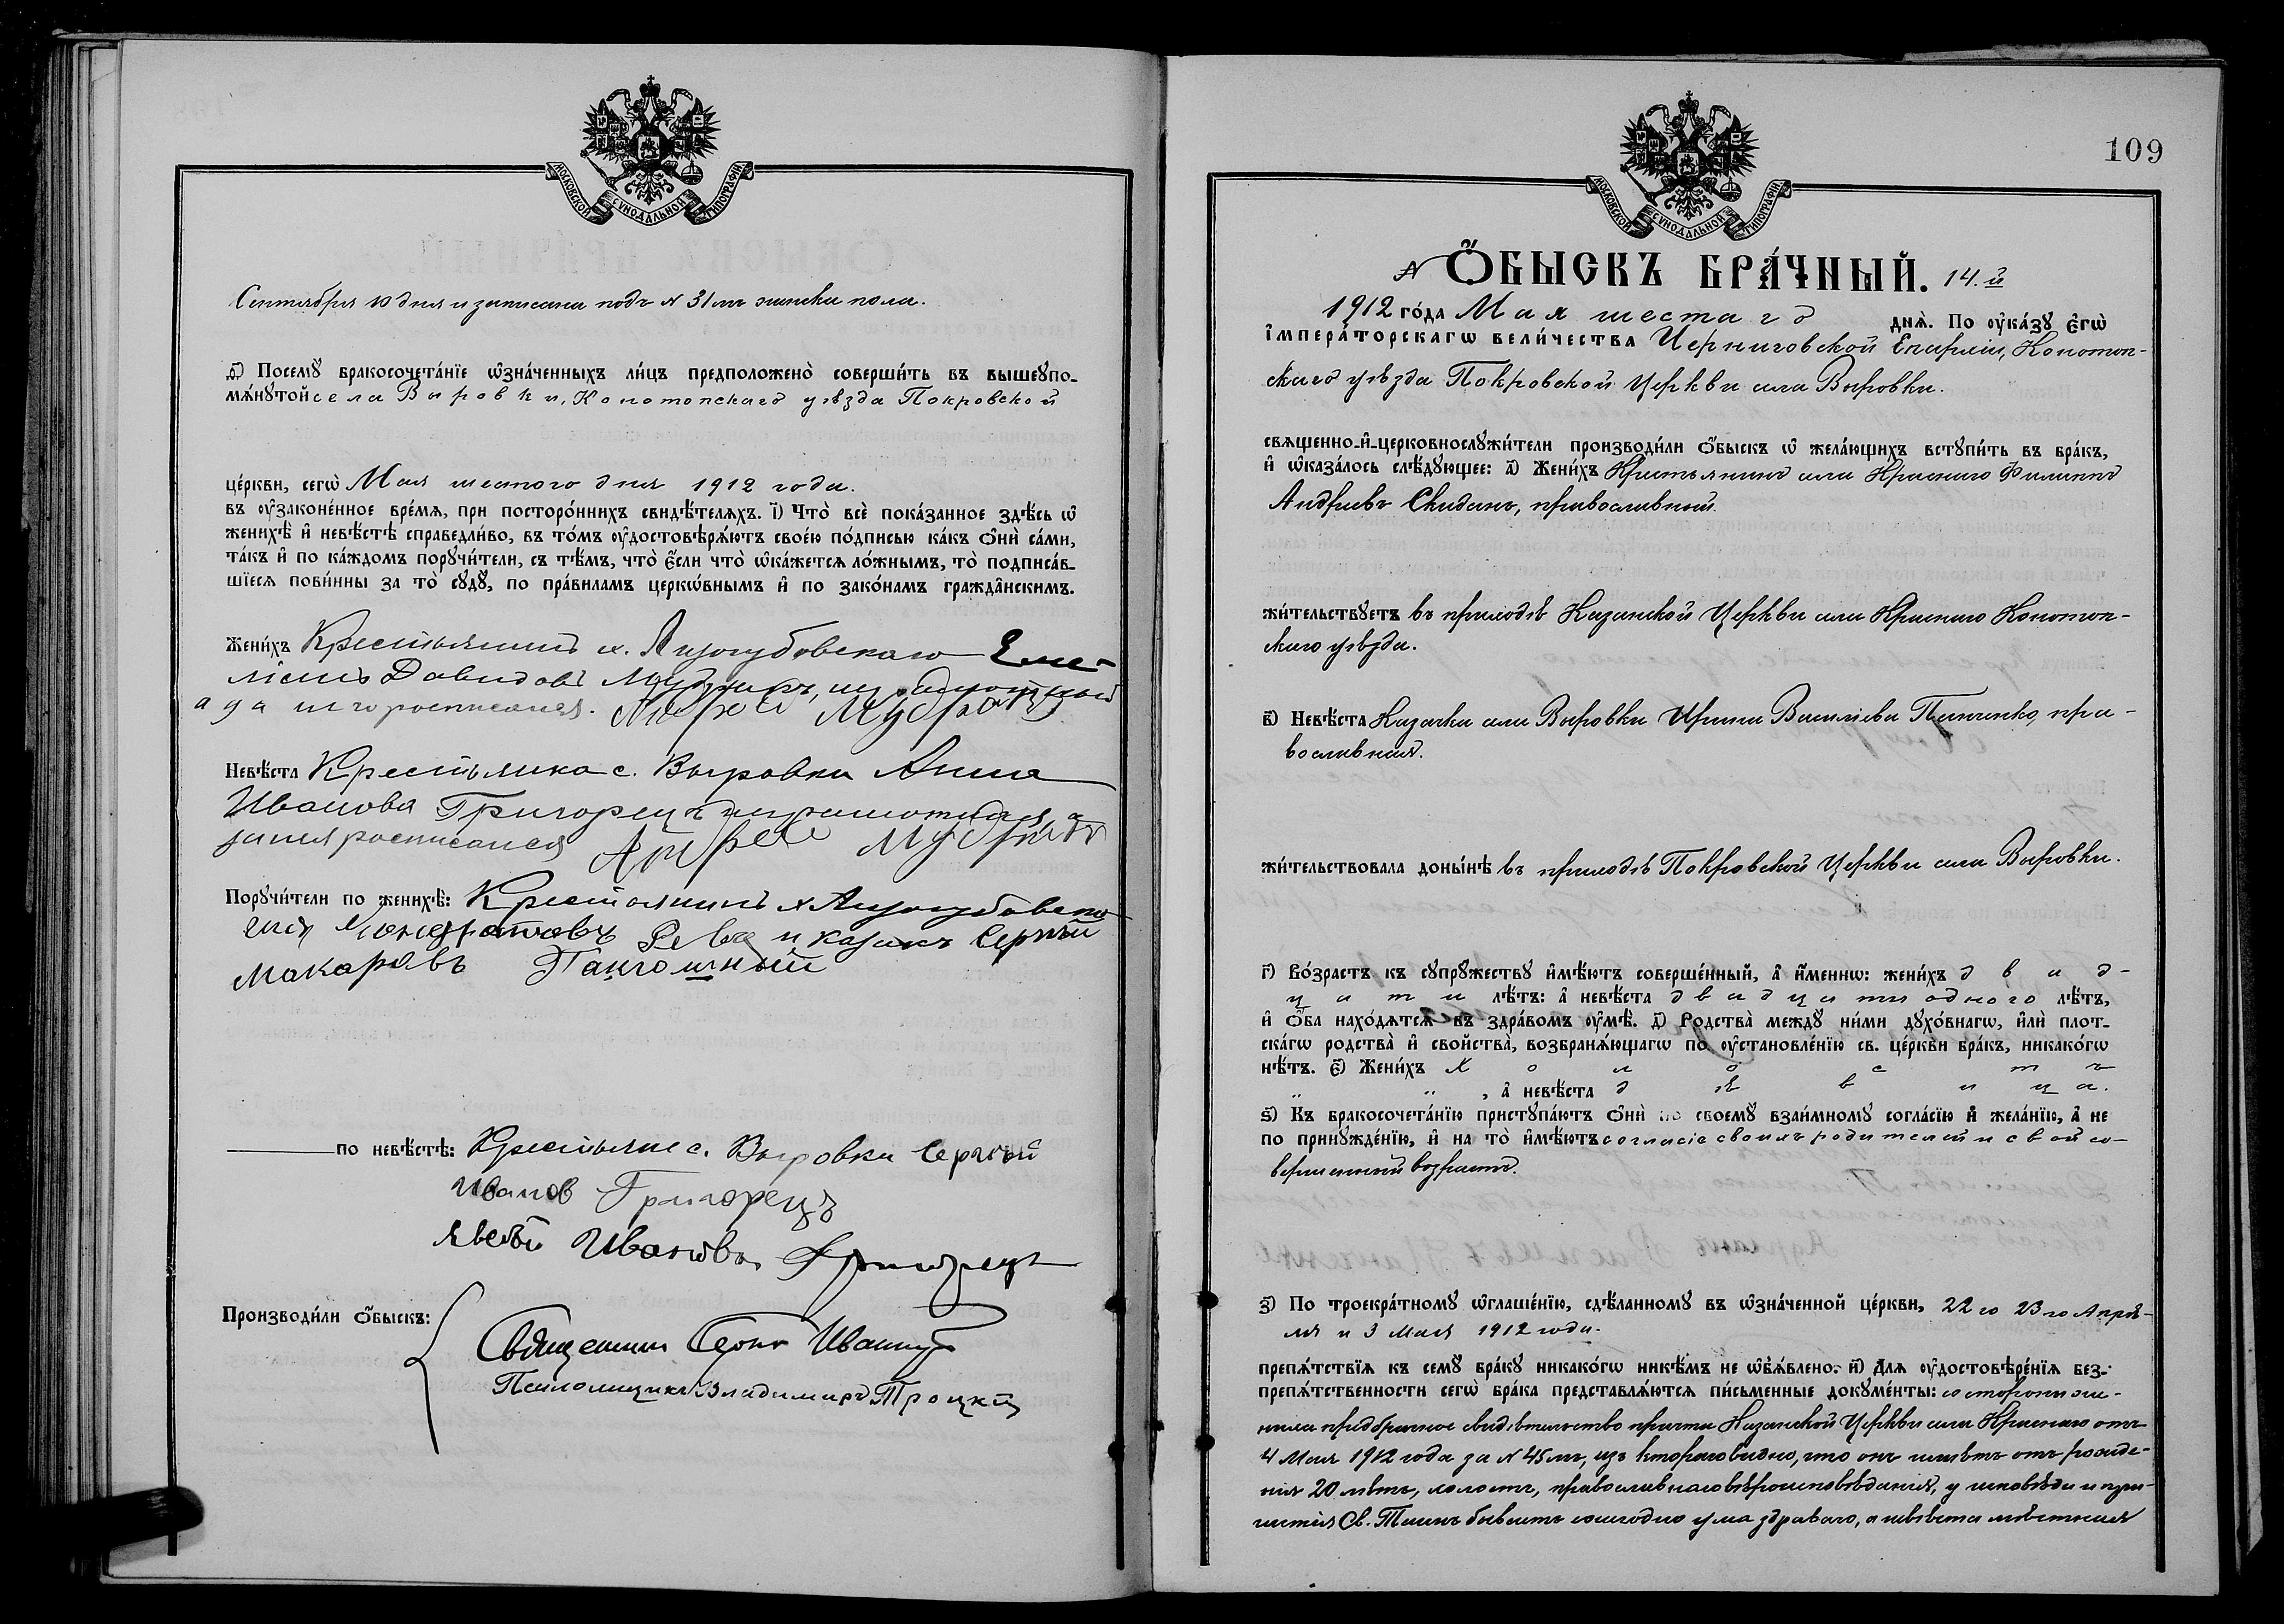 МОСКОВСКОЙ СѴНОДАЛЬНОЙ ТИПОГРАФІИ
Сентября 10 дня и записана подъ № 31мъ женска пола.
д҃) Посемꙋ бракосочета́нїе ѡ҆зна́ченныхъ ли́цъ предположено̀ соверши́ть въ вышеꙋпо-
мѧ́нꙋтой села Выровки, Конотопскаго уѣзда Покровской
це́ркви, сегѡ̀ Мая шестого дня 1912 года.
въ ᲂу҆законе́нное вре́мѧ, при посторо́ннихъ свидѣ́телѧхъ. і҃) Что̀ всѐ пока́занное здѣ́сь ѡ҆
женихѣ̀ и҆ невѣ́стѣ справедли́во, въ то́мъ ᲂу҆достовѣрѧ́ютъ свое́ю по́дписью ка́къ ѻ҆нѝ са́ми,
та́къ и҆ по ка́ждомъ порꙋчи́тели, съ тѣ́мъ, что̀ є҆́сли что̀ ѡ҆ка́жетсѧ ло́жнымъ, то̀ подписа́в-
шїесѧ пови́нны за то̀ сꙋдꙋ̀, по пра́виламъ церкѡ́внымъ и҆ по зако́намъ гражда̂нскимъ.
Жени́хъ Крестьянинъ х. Лизогубовскаго Еме-
ліанъ Давидовъ Мудрикъ, неграмотный
а за него росписался. Андрей Мудрикъ
Невѣ́ста Крестьянка с. Выровки Анна
Иванова Григорецъ неграмотная, а
за нея росписался Андрей Мудрикъ
Порꙋчи́тели по женихѣ̀: Крестьянинъ х Лизогубовско
Кондратовъ Рева и казакъ Сергѣй
Макаровъ
по невѣ́стѣ: Крестьяне с. Выровки Сергѣй
Иванов Григорецъ
Ивановъ Григорецъ
Производи́ли ѻ҆́быскъ:
Священникъ Іваниц
Псаломщикъ Владимиръ Троцкій
109
МОСКОВСКОЙ СѴНОДАЛЬНОЙ ТИПОГРАФІИ
№ Ѻ҆́БЫСКЪ БРА́ЧНЫЙ. 14.й
1912 го́да Мая шестаго днѧ̀. По ᲂу҆ка́зꙋ є҆гѡ̀
і҆мпера́торскагѡ вели́чества Черниговской Епархіи, Конотоп-
скаго уѣзда Покровской Церкви села Выровки.
свѧщенно-и҆-церковнослꙋжи́тели производи́ли ѻ҆́быскъ ѡ҆ жела́ющихъ встꙋпи́ть въ бра́къ,
и҆ ѡ҆каза́лось слѣ́дꙋющее: а҃) Жени́хъ Крестьянинъ села Краснаго Филиппъ
Андреевъ Скиданъ, православный.
жи́тельствꙋетъ въ приходѣ Казанской Церкви села Краснаго Конотоп-
скаго уѣзда.
в҃) Невѣ́ста Казачка села Выровки Ирина Васильева Панченко, пра-
вославная.
жи́тельствовала доны́нѣ въ приходѣ Покровской Церкви села Выровки.
г҃) Во́зрастъ къ сꙋпрꙋжествꙋ и҆мѣ́ютъ соверше́нный, а҆ и҆́меннѡ: жени́хъ двад-
цати лѣ́тъ: а҆ невѣ́ста двадцати одного лѣ́тъ,
и҆ ѻ҆́ба нахо́дѧтсѧ въ здра́вомъ ᲂу҆мѣ̀. д҃) Родства̀ междꙋ ни́ми дꙋхо́внагѡ, и҆лѝ плот-
ска́гѡ родства̀ и҆ свойства̀, возбранѧ́ющагѡ по ᲂу҆становле́нїю св. це́ркви бра́къ, никако́гѡ
нѣ́тъ. є҃) Жени́хъ холостъ
„ „ , а҆ невѣ́ста дѣвица.
ѕ҃) Къ бракосочета́нїю пристꙋпа́ютъ ѻ҆нѝ по своемꙋ взаи́мномꙋ согла́сїю и҆ жела́нїю, а҆ не
по принꙋжде́нїю, и҆ на то̀ и҆мѣ́ютъ согласіе своихъ родителей и свой со-
вершенный возрастъ.
з҃) По троекра́тномꙋ ѡ҆глаше́нїю, сдѣ́ланномꙋ въ ѡ҆зна́ченной це́ркви, 22го 23го Апрѣ-
ля и 3 Мая 1912 года.
препѧ́тствїѧ къ семꙋ̀ бра́кꙋ никако́гѡ никѣ́мъ не ѡ҆б̾ѧ́влено. и҃) Длѧ ᲂу҆достовѣре́нїѧ без-
препѧ́тственности сегѡ̀ бра́ка представлѧ́ютсѧ пи́сьменные докꙋме́нты: со стороны же-
ниха предбрачное свидѣтельство причта Казанской Церкви села Краснаго отъ
4 Мая 1912 года за № 45мъ, изъ котораго видно, что онъ имѣетъ отъ рожде-
нія 20 лѣтъ, холостъ, православнаго вѣроисповѣданія, у исповѣди и при-
частія Св. Таинъ бываетъ ежегодно ума здраваго, а невѣста мѣстная